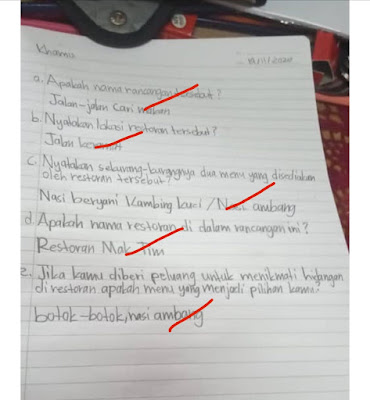 Khairu
a. Apakah nama rancangan tersebut?
Jalan-jalan Cari makan
b. Nyatakan lokasi restoran tersebut?
Jalan
c. Nyatakan sekurang-kurangnya dua menu yang disediakan
oleh restoran tersebut?
Nasi beryani Kambing kuzi / Nasi ambang
d. Apakah nama restoran di dalam rancangan ini?
Restoran Mak Tim
e. Jika kamu diberi peluang untuk menikmati hidangan
di restoran apakah menu yang menjadi pilihan kamu.
botok-botok, nasi ambang